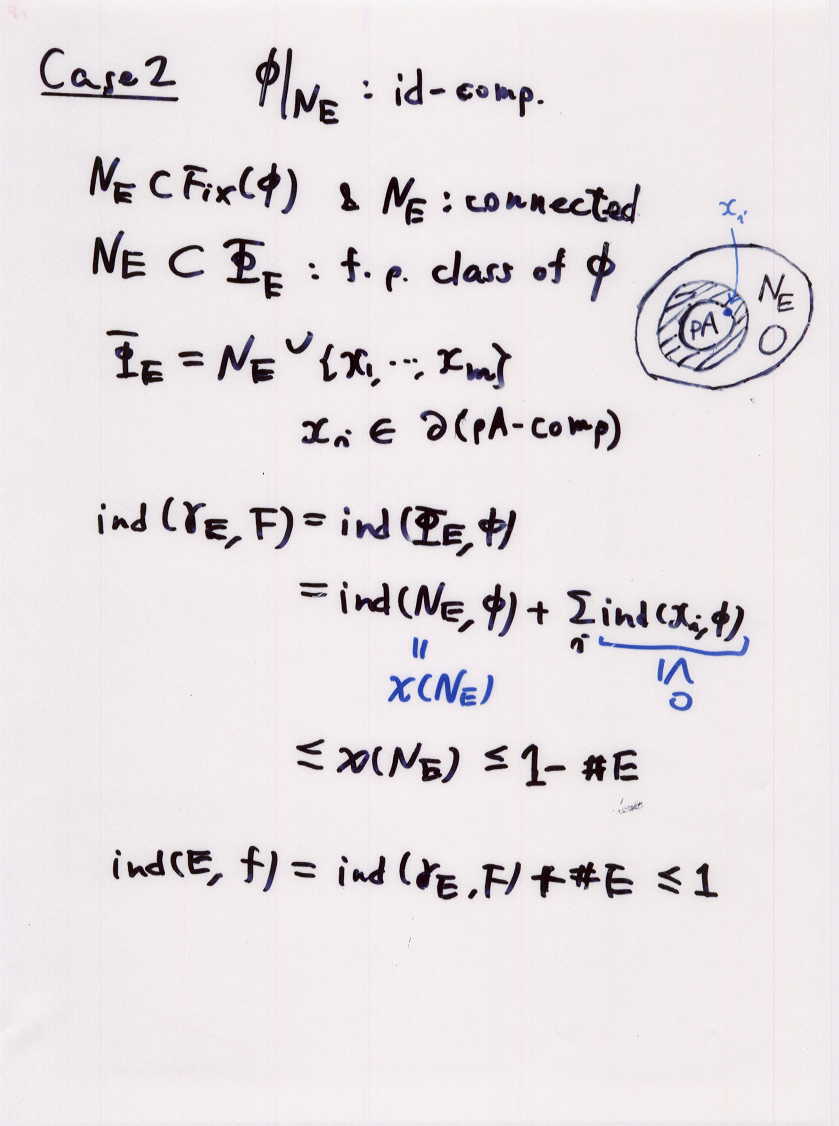 Case 2 ϕ|N_E : id-comp.
N_E ⊂ Fix(ϕ) & N_E : connected
x_i
N_E ⊂ Φ_E : f.p. class of ϕ
N_E
pA
Φ_E = N_E ∪ {x_1, ..., x_m}
x_i ∈ ∂(pA-comp)
ind(γ_E, F) = ind(Φ_E, ϕ)
= ind(N_E, ϕ) + Σ_i ind(x_i, ϕ)
=
χ(N_E)
≤
0
≤ χ(N_E) ≤ 1 - #E
ind(E, f) = ind(γ_E, F) + #E ≤ 1